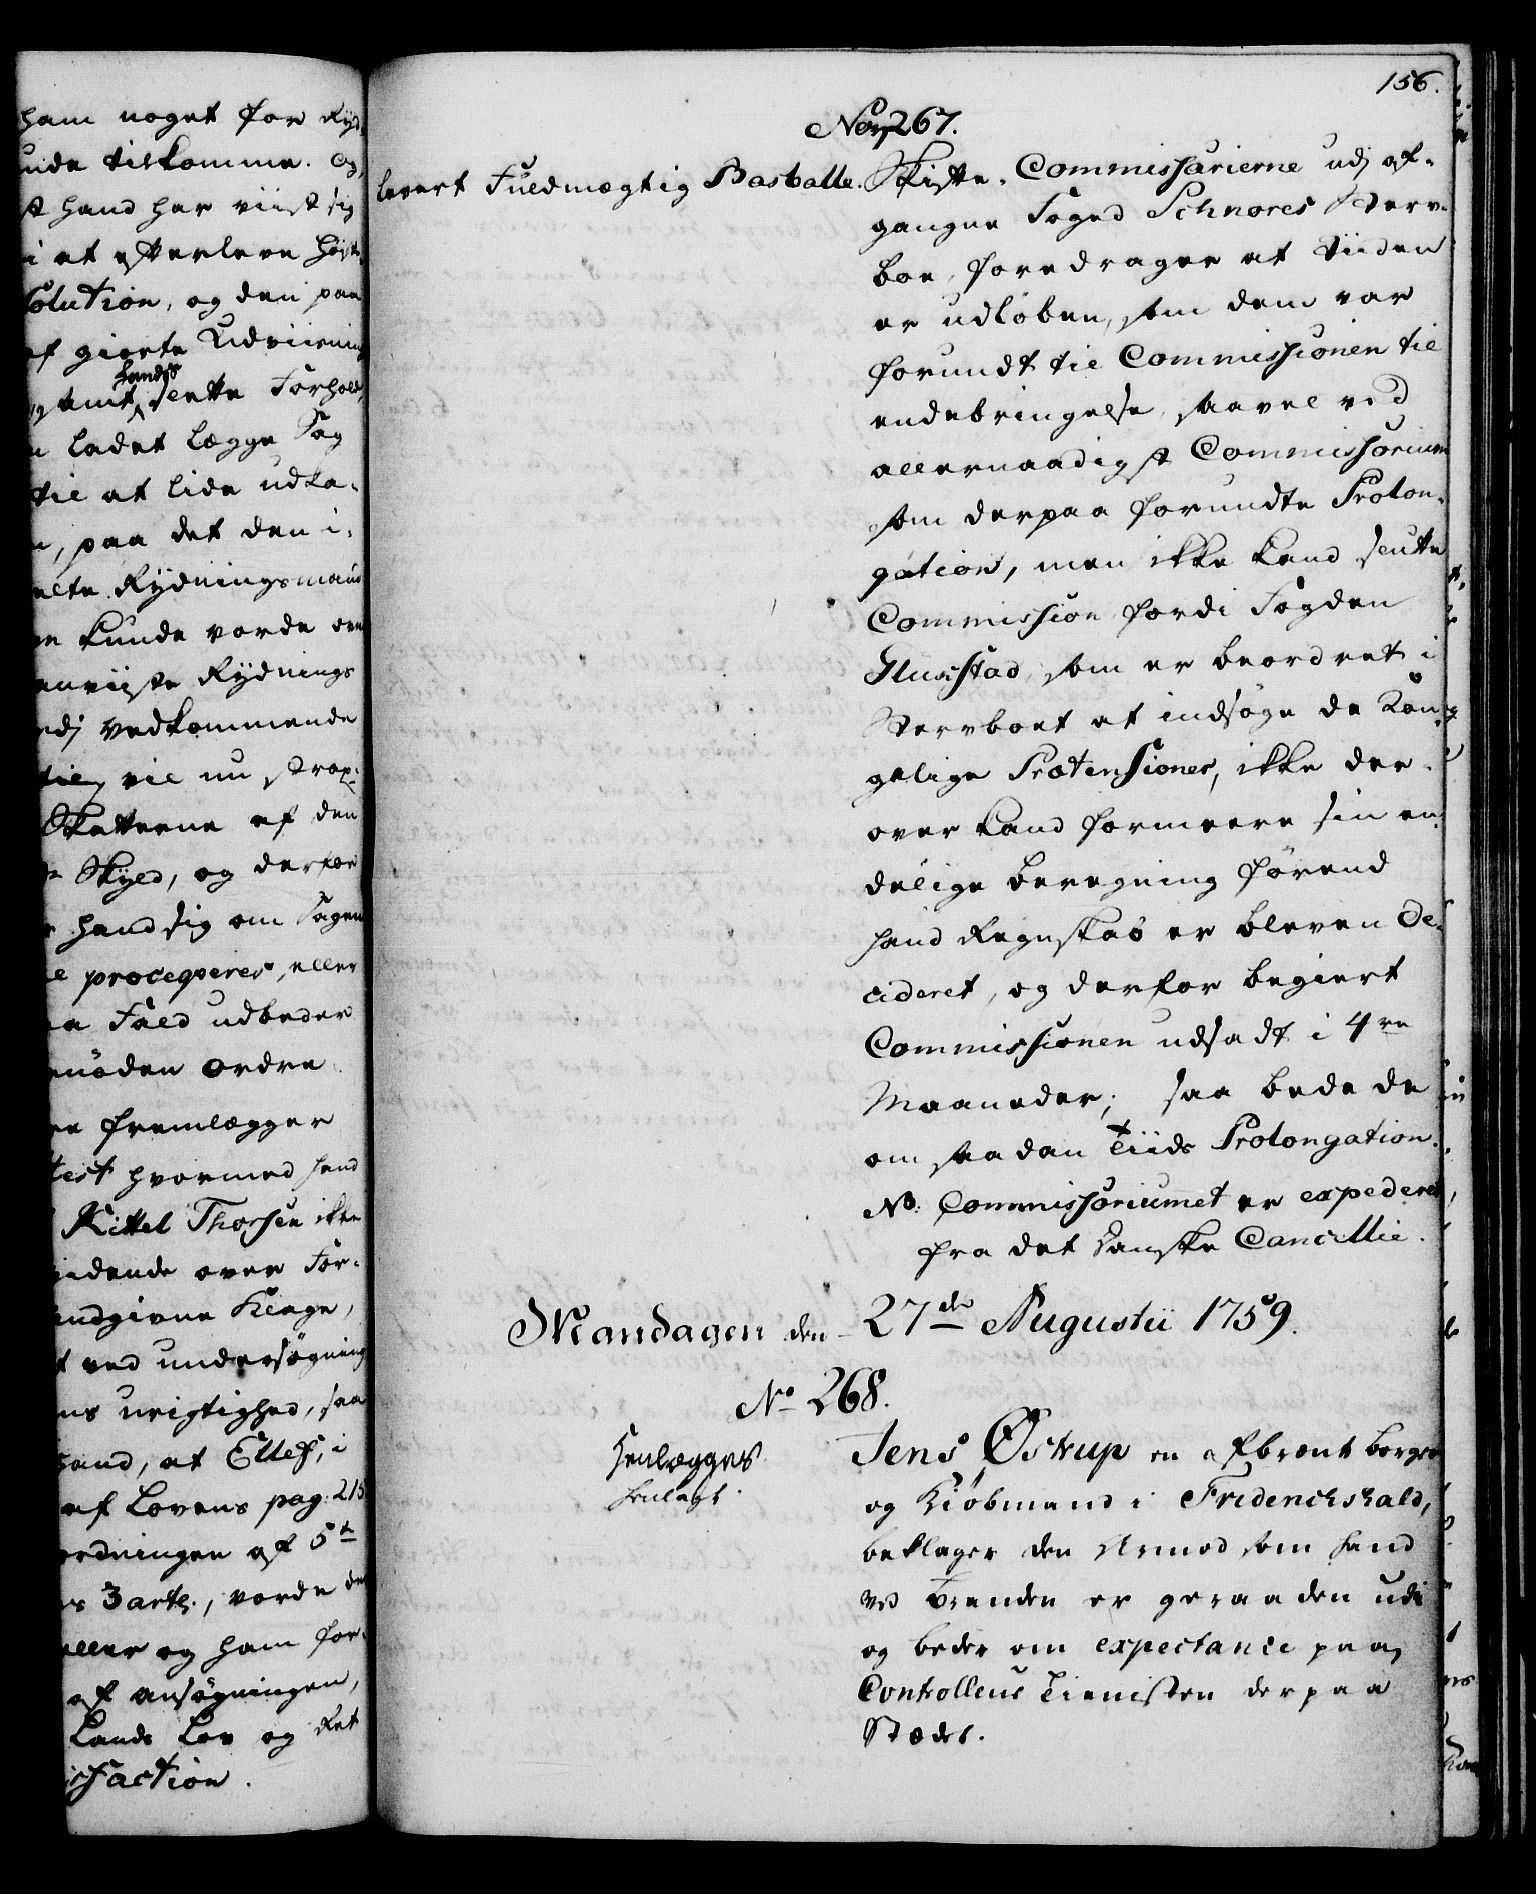 ham noget for Ryd
unde tilkomme. og
at hand har viist sig
i at efterleve Højst
solution, og den paa
af giorte Udviisning
hands
samt slette Forhold,
ladet lægge Sag
til at lide udka-
n, paa det den i-
elte Rydningsmand
en kunde vorde over
anviiste Rydnings
ved vedkommende
til, vil nu strax
Skatterne af den
Skyld, og derfor
hand sig om Sagen
procequeres, eller
Fald udbeder
nöden ordre
fremlægger
test hvormed hand
Kittel Thorsen ikke
idende over For-
andgivne Klage,
ved undersøgning
ns urigtighed, saa
hand, at Ellefs, i
af Lovens pag: 215
ordningen af 5te
3 art:, vorde
eller og ham for-
af ansøgningen,
Lands Lov og Ret
isfaction.
156.
No 267.
levert Fuldmægtig Basballe.
Skifte-Commissarierne udj af-
gangne Foged Schnores Sterv-
boe, foredrager at Tiiden
er udløben, som dem var
forundt til Commissionen til
endebringelse, saavel ved
allernaadigst Commissorium
som derpaa forundte Prolon-
gation, men ikke kand slutte
Commission fordi Fogden
Husstad, som er beordret i
Stervboet at indsøge de Kon-
gelige Prætensioner, ikke der-
over kand formeere sin en-
delige beregning førend
hand Regnskab er bleven de-
cideret, og derfor begiert
Commissionen udsadt i 4re
Maaneder; saa bede de
om saadan Tiids Prolongation.
NB: Commissoriumet er expederet
fra det danske Cancellie.
Mandagen den 27de Augustii 1759.
No 268.
Henlægges
henlagt.
Jens Østrup en afbrent borger
og Kiøbmand i Friderichshald,
beklager den Armod som hand
ved Branden er geraaden udi
og beder om expectance paa
Controlleur Tienisten der paa
Stædet.